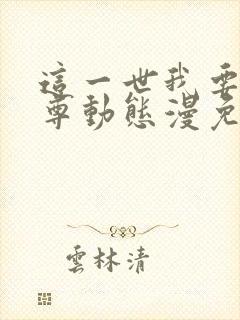 這一世我要
尊動態漫免
雲林清